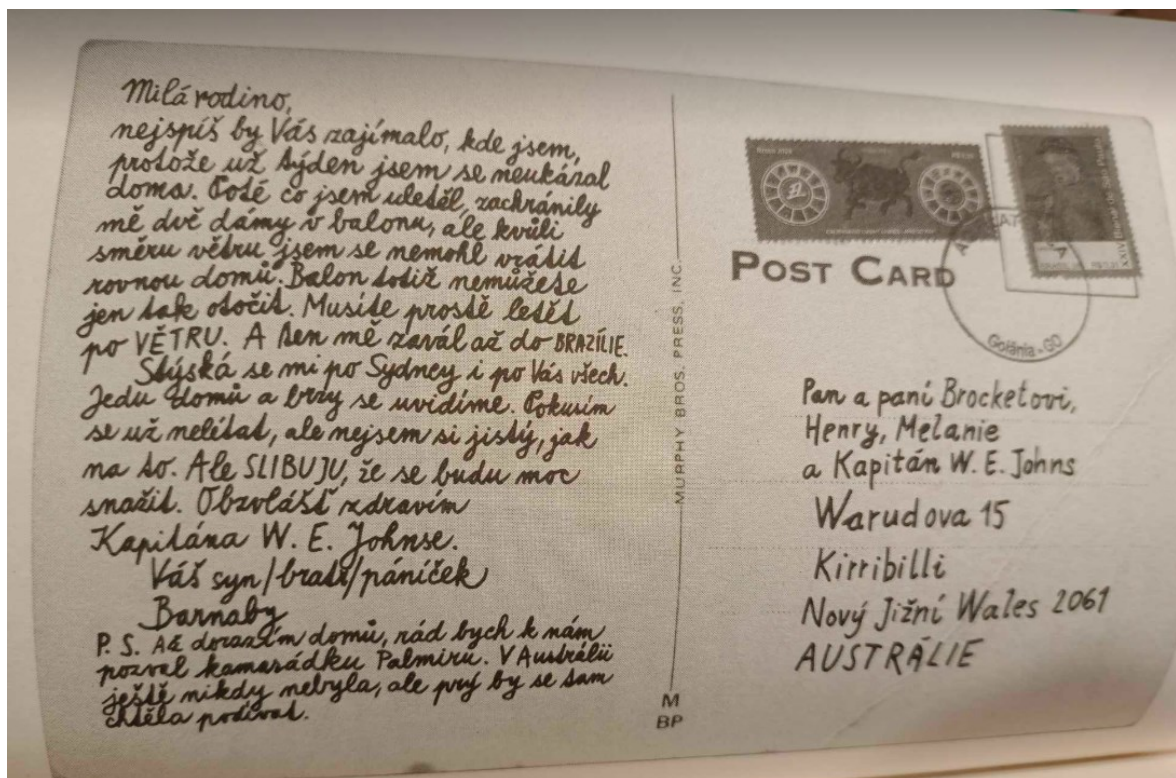 Milá rodino,
nejspíš by Vás zajímalo, kde jsem,
protože už týden jsem se neukázal
doma. Poté co jsem uletěl, zachránily
mě dvě dámy v balonu, ale kvůli
směru větru jsem se nemohl vrátit
rovnou domů. Balon totiž nemůžete
jen tak otočit. Musíte prostě letět
po VĚTRU. A ten mě zavál až do BRAZÍLIE.
Stýská se mi po Sydney i po Vás všech.
Jedu domů a brzy se uvidíme. Pokusím
se už nelétat, ale nejsem si jistý, jak
na to. Ale SLIBUJU, že se budu moc
snažit. Obzvlášť zdravím
Kapitána W. E. Johnse.
Váš syn/bratr/páníček
Barnaby
P. S. Až dorazím domů, rád bych k nám
pozval kamarádku Palmiru. V Austrálii
ještě nikdy nebyla, ale prý by se tam
chtěla podívat.
MURPHY BROS. PRESS, INC.
M
BP
POST CARD
Goiânia - GO
Pan a paní Brocketovi,
Henry, Melanie
a Kapitán W. E. Johns
Warudova 15
Kirribilli
Nový Jižní Wales 2061
AUSTRÁLIE